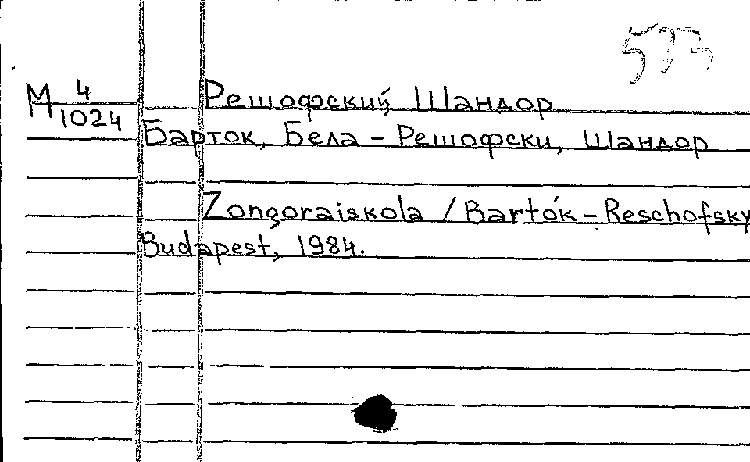 593
М 4/1024
Решофский Шандор
Барток, Бела – Решофски, Шандор
Zongoraiskola / Bartók – Reschofsky
Budapest, 1984.